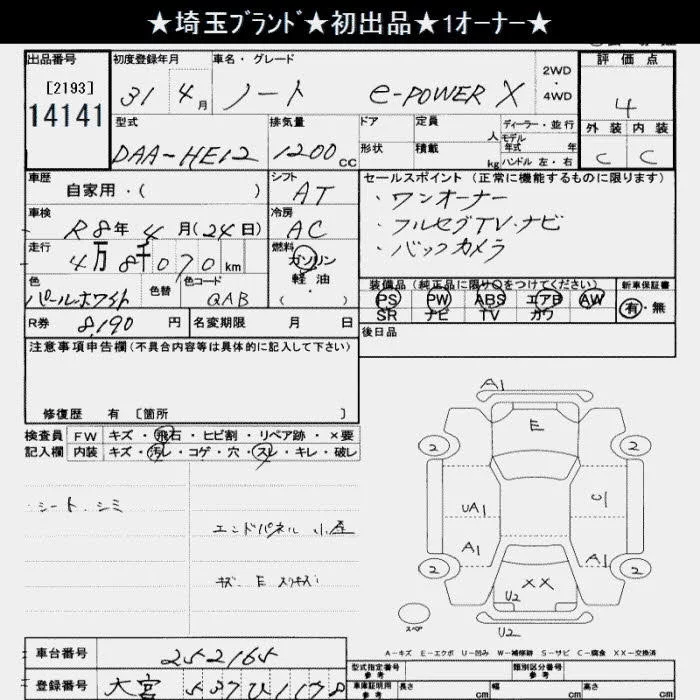 ★埼玉ﾌﾞﾗﾝﾄﾞ★初出品★1オーナー★
出品番号 初度登録年月 車名・グレード 評価点
[2193] 31 4月 ノート e-POWER X 2WD 4WD 4
14141 外装 内装
型式 排気量 ドア 定員 人 ディーラー・並行
モデル年式 年
DAA-HE12 1200cc 形状 積載 kg ハンドル 左・右 C C
車歴 シフト セールスポイント (正常に機能するものに限ります)
自家用・( ) AT ・ワンオーナー
車検 冷房 ・フルセグTV・ナビ
R8年4月(24日) AC ・バックカメラ
走行 燃料
4万8千070km ガソリン 軽油 ( )
色 色替 色コード 装備品 (純正品に限り○をつけてください) 新車保証書
パールホワイト QAB PS PW ABS エアB AW 有・無
SR ナビ TV カワ
R券 8,190円 名変期限 月 日 後日品
注意事項申告欄(不具合内容等は具体的に記入して下さい)
修復歴 有 [箇所 ]
検査員 FW キズ・飛石・ヒビ割・リペア跡・×要
記入欄 内装 キズ・汚レ・コゲ・穴・スレ・キレ・破レ
シート.シミ
エンドパネル 小歪
A1
E
2 2
UA1 U1
A1 A1
2 2
XX
U2
スペア U2
A-キズ E-エクボ U-凹み W-補修跡 S-サビ C-腐食 XX-交換済
車台番号 252165 型式指定番号 参考 類別区分番号 参考
登録番号 大宮 車庫証明用 参考 長さ cm 幅 cm 高さ cm